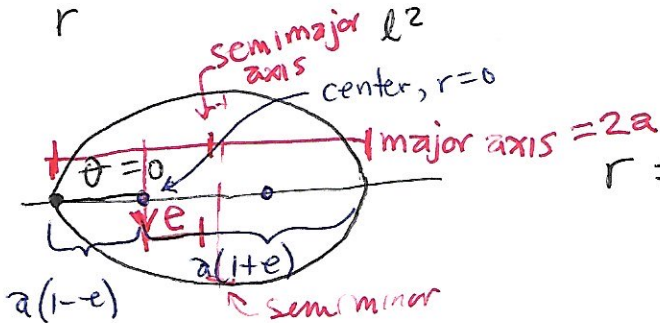 r
semimajor l²
axis
center, r=0
major axis = 2a
θ = 0
r =
e
a(1+e)
a(1-e)
semiminor